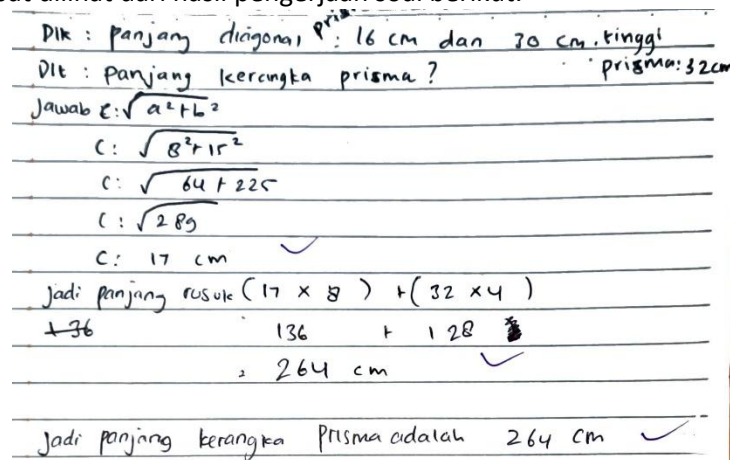 Dik : panjang diagonal pris : 16 cm dan 30 cm. tinggi
prisma: 32cm
Dit : panjang kerangka prisma ?
Jawab c: √a²+b²
C: √8²+15²
C: √64 + 225
C: √289
C: 17 cm
Jadi panjang rusuk (17 x 8) + (32 x 4)
136
136 + 128
= 264 cm
Jadi panjang kerangka prisma adalah 264 cm